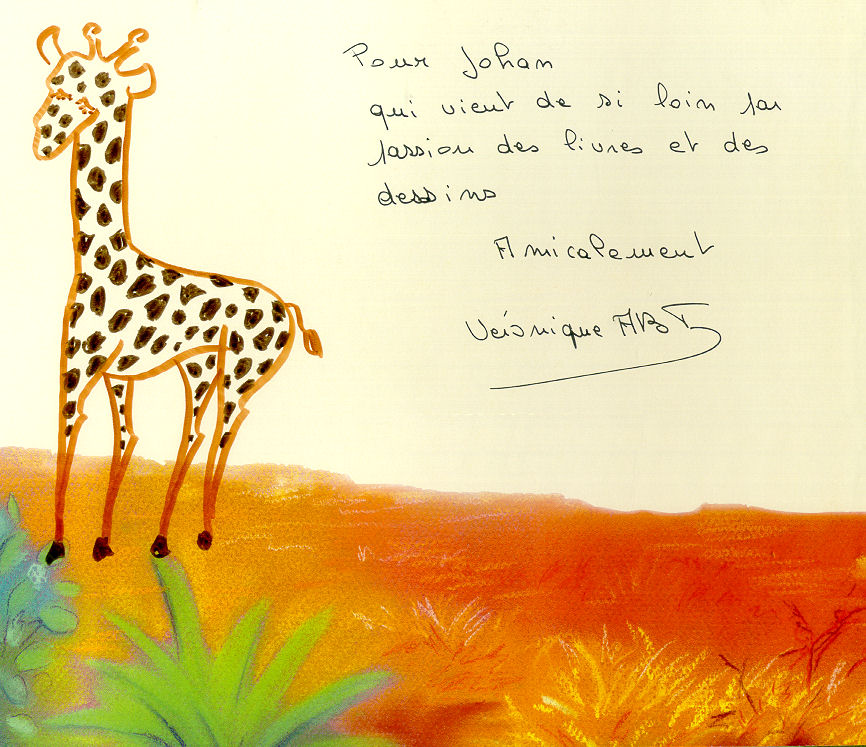 Pour Johan
qui vient de si loin par
passion des livres et des
dessins
Amicalement
Véronique ABT